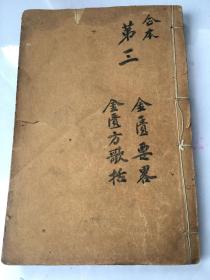 合本
第三
金匱要畧
金匱方歌括